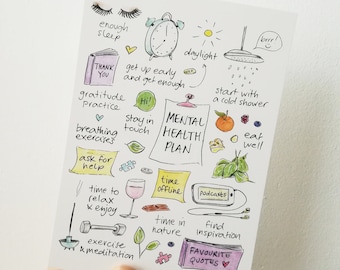 enough
sleep
daylight
brrr!
THANK
YOU
get up early
and get enough
start with
a cold shower
gratitude
practice
Hi!
stay in
touch
MENTAL
HEALTH
PLAN
breathing
exercises
eat
well
ask for
help
time
offline
podcasts
time to
relax
& enjoy
time in
nature
find
inspiration
exercise
& meditation
FAVOURITE
QUOTES